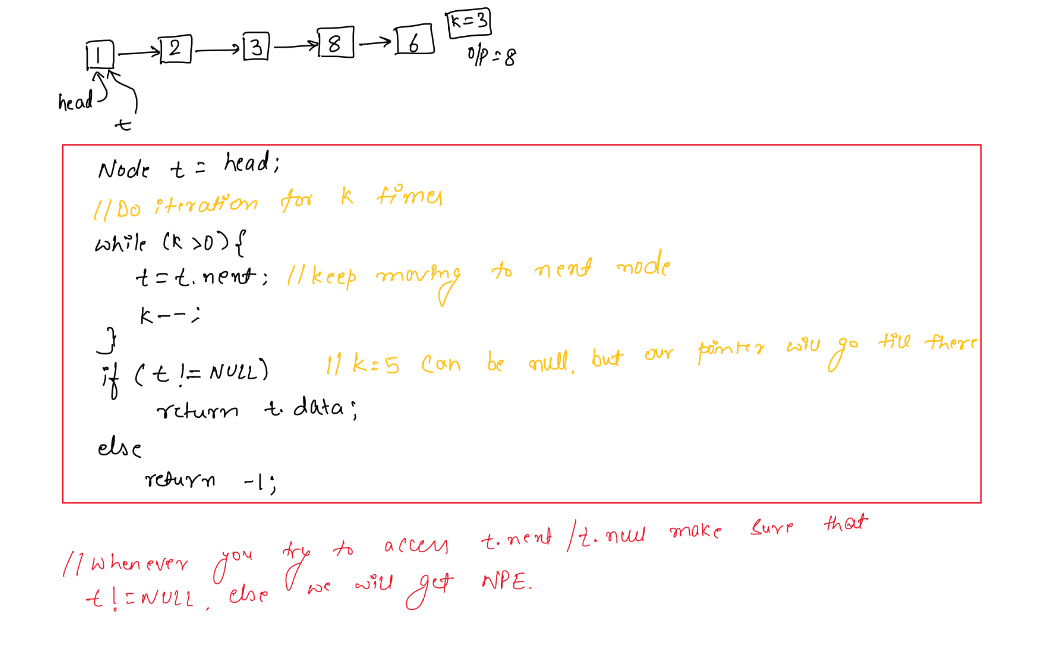 1 → 2 → 3 → 8 → 6 k=3
o/p = 8
head
t
Node t = head;
//Do iteration for k times
while (k >0) {
t = t.next; //keep moving to next node
k--;
}
if (t != NULL) // k=5 can be null, but our pointer will go till there
return t.data;
else
return -1;
//Whenever you try to access t.next/t.null make sure that
t!=NULL, else we will get NPE.